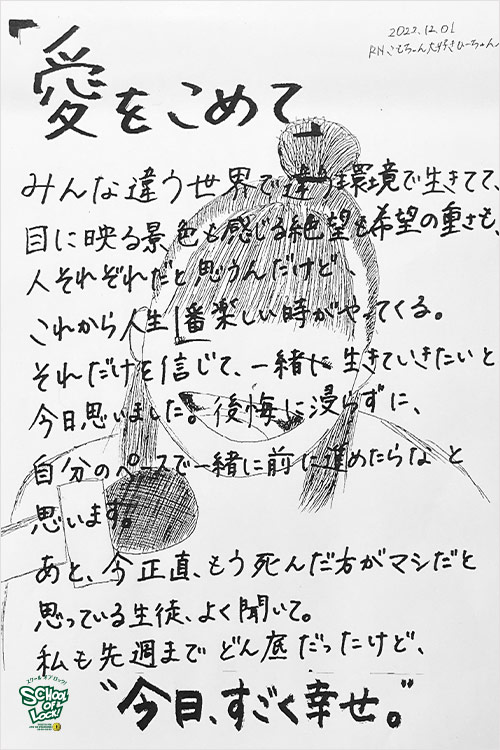 2022.12.01
RNこもちゃん大好きひーちゃん
『愛をこめて』
みんな違う世界で違う環境で生きてて、
目に映る景色も感じる絶望も希望の重さも、
人それぞれだと思うんだけど、
これから人生1番楽しい時がやってくる。
それだけを信じて、一緒に生きていきたいと
今日思いました。後悔に浸らずに、
自分のペースで一緒に前に進めたらなと
思います。
あと、今正直、もう死んだ方がマシだと
思っている生徒、よく聞いて。
私も先週までどん底だったけど、
"今日、すごく幸せ。"
スクールオブロック!
SCHOOL
OF
LOCK!